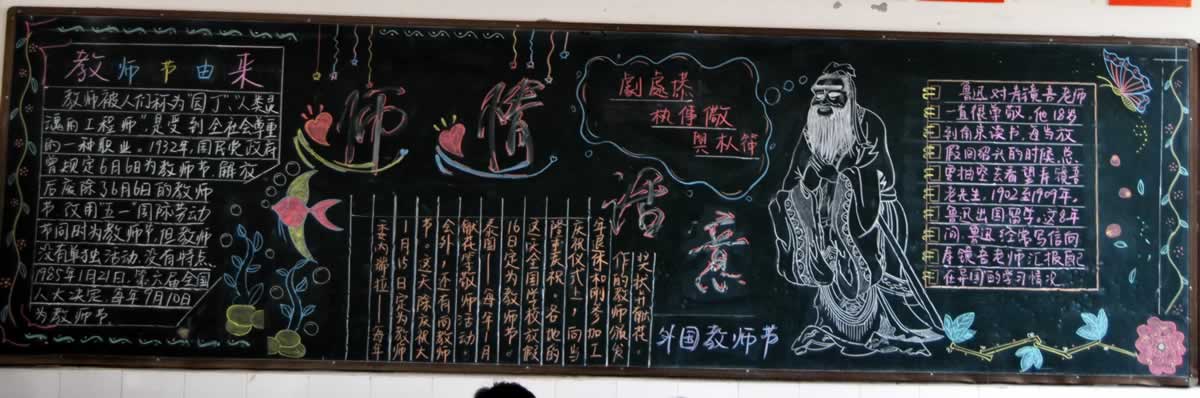 教师节由来
教师被人们称为"园丁","人类灵
魂的工程师",是受到全社会尊重
的一种职业。1932年,国民党政府
曾规定6月6日为教师节,解放
后废除了6月6日的教师
节,改用"五一"国际劳动
节同时为教师节,但教师
没有单独活动,没有特点
1985年1月21日,第六届全国
人大决定,每年9月10日
为教师节
师情话意
外国教师节
委内瑞拉——每年
1月15日定为教师
节。这天除庆祝大
会外,还有向教师
献花等敬师活动。
泰国——每年1月
16日定为教师节。
这一天全国学校放假
隆重庆祝。各地的
庆祝仪式上,向当
年退休和刚参加工
作的教师颁发
奖状并献花。
鲁迅对寿镜吾老师
一直很尊敬。他18岁
到南京读书,每当放
假回绍兴的时候,总
要抽空去看望寿镜吾
老先生。1902至1909年,
鲁迅出国留学,这8年
间,鲁迅经常写信向
寿镜吾老师汇报
在异国的学习情况